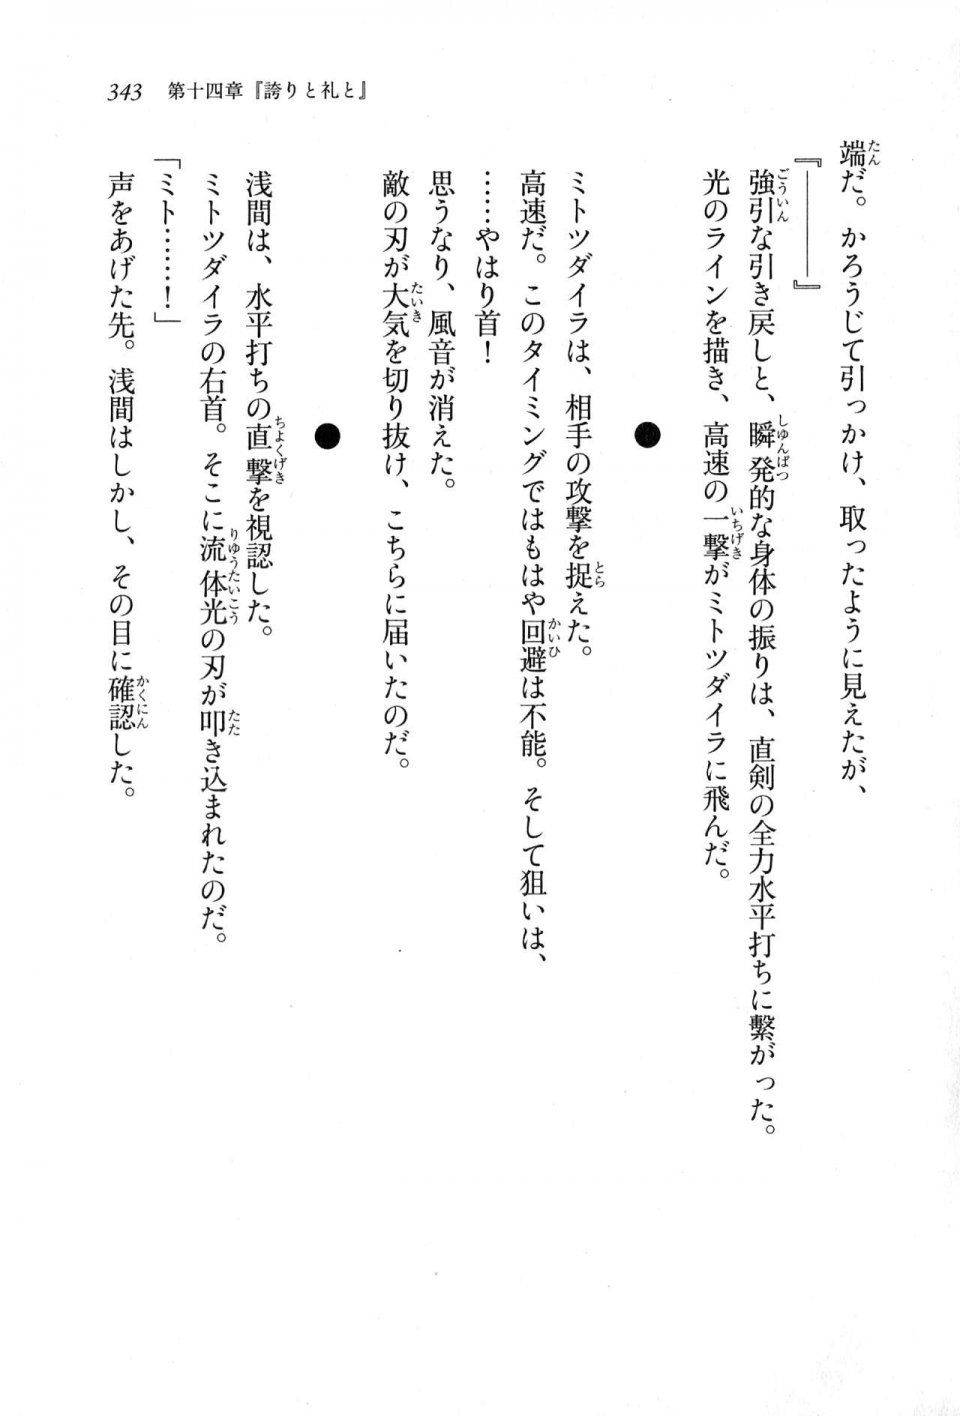 343　第十四章『誇りと礼と』
端だ。かろうじて引っかけ、取ったように見えたが、
『――――』
強引な引き戻しと、瞬発的な身体の振りは、直剣の全力水平打ちに繫がった。
光のラインを描き、高速の一撃がミトツダイラに飛んだ。
●
ミトツダイラは、相手の攻撃を捉えた。
高速だ。このタイミングではもはや回避は不能。そして狙いは、
……やはり首！
思うなり、風音が消えた。
敵の刃が大気を切り抜け、こちらに届いたのだ。
●
浅間は、水平打ちの直撃を視認した。
ミトツダイラの右首。そこに流体光の刃が叩き込まれたのだ。
「ミト……！」
声をあげた先。浅間はしかし、その目に確認した。